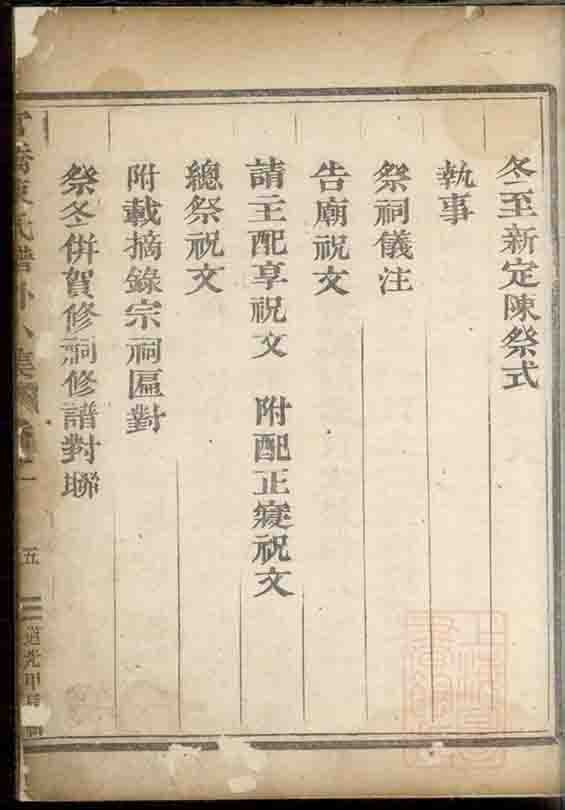 冬至新定陳祭式
執事
祭祠儀注
告廟祝文
請主配享祝文 附配正寢祝文
總祭祝文
附載摘錄宗祠匾對
祭冬併賀修祠修譜對聮
氏譜
五
道光甲